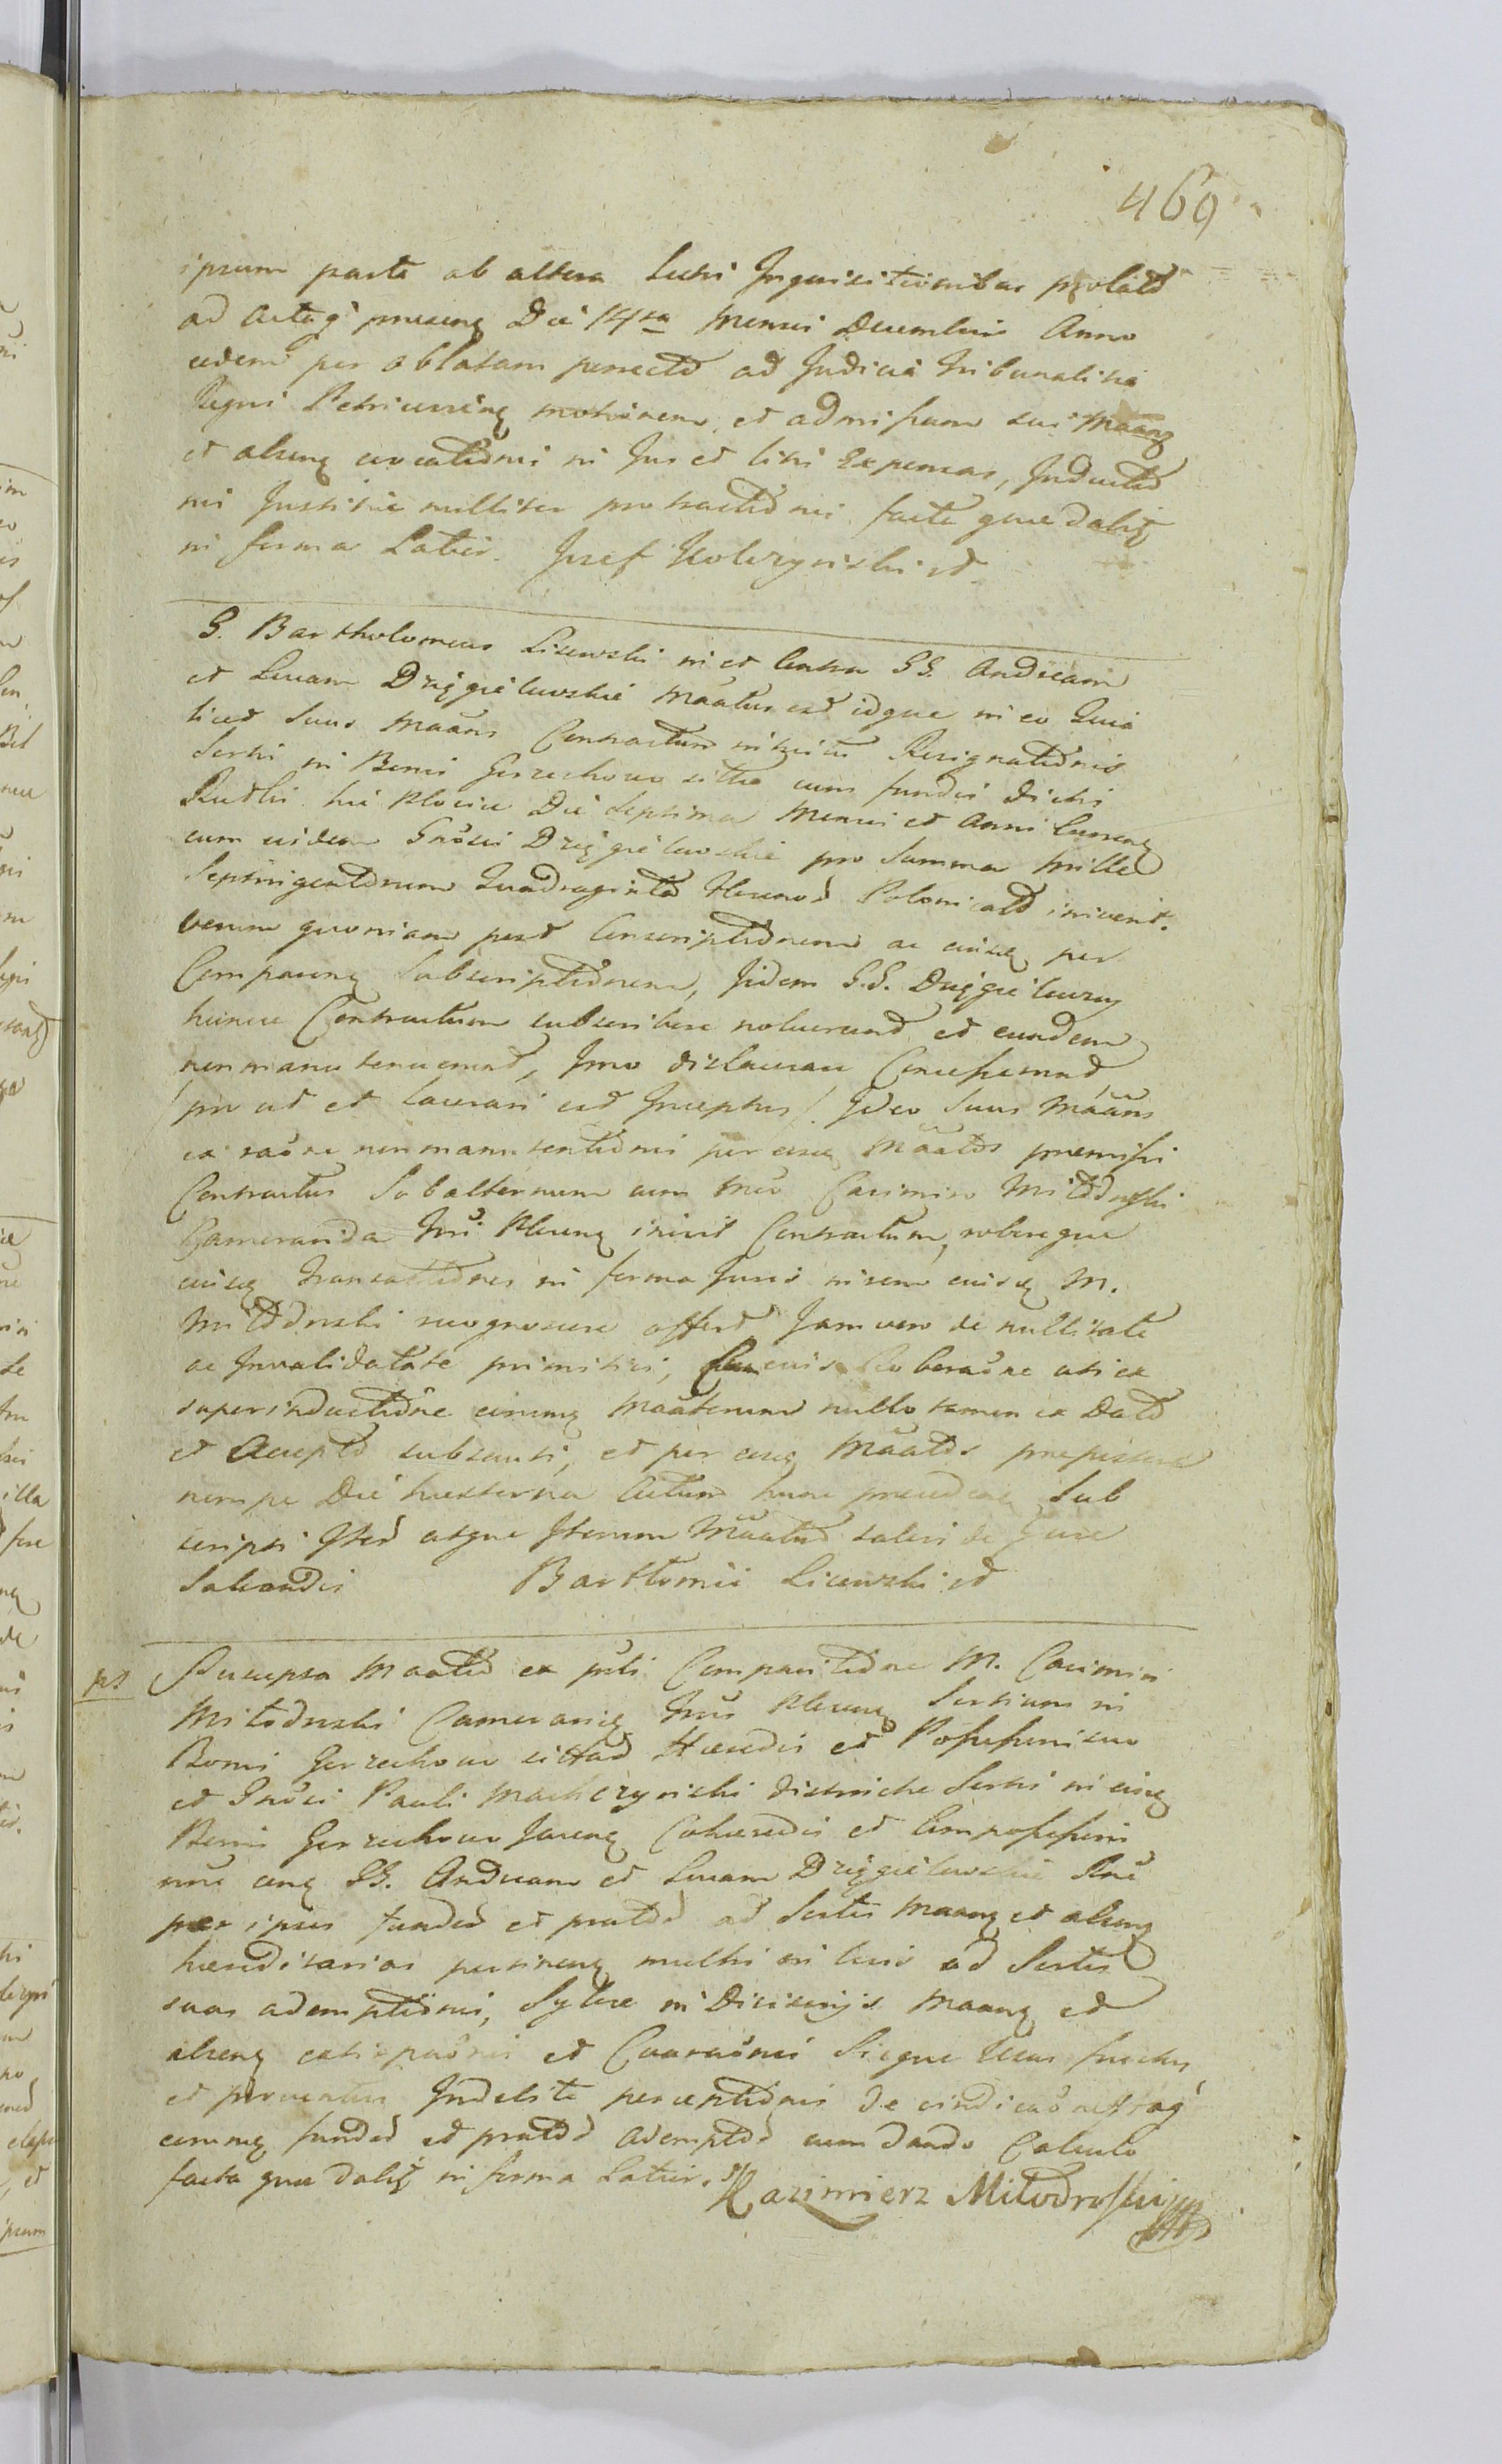 469
ipsum parte ab altera Lutri Inquisitionibus prolatis
ad Actaqꝫ praesenꝫ Die 14ta Mensis Decembris Anno
eodem per oblatam porrectis ad Judicia Tribunalitia
Regni Petricoviensꝫ motionem et admissum sui Maanꝫ
et aliorꝫ evocationis in Jus et litis Expensas, Inductio
nis Justitiae nulliter protractionis facta quae dabitꝫ
in forma Latius. Josef Kolczynski
G. Bartholomeus Lisewski in et contra GG. Andream
et Evam Drzggielewskie Maatus est idque in eo Quia
licet Suus Maans Contractum intuitu Resignationis
Sortis in Bonis Gorzechowo sittae cum fundis dictis
Rudki hic Plociae Die Septima Mensis et Anni Currenꝫ
cum iisdem Gnosis Drzggielewskie pro Summa Mille
Septingentorum Quadraginta florenos Polonicales iniverit.
verum quoniam post Conscriptionem ac eiusꝫ per
Comparenꝫ Subscriptionem, Iidem G.G. Drzggielewscy
huncce Contractum subscribere noluerunt et eundem
non manutenuerunt, Imo dislacerare Conceperunt
/ pro ut et lacerari est Inceptus /. Ideo Suus Maans
ex raone non manutentionis per eosꝫ Maatos praemissi
Contractus Subalternum cum Mco Casimiro Mitodroski
Camerarida Trri Plocenꝫ inivit Contractum, roborique
eiusꝫ Transactiones in forma Juris nisum eiusꝫ M.
Mitodroski recognoscere offert Jam vero de nullitate
ac Invalidatate primitivi, eiusꝫ Roboraone uti ex
superinductione eorumꝫ Maatorum nullo tamen ex Dato
et Accepto subsecuti, et per eosꝫ Maatos
nempe Die hesterna Actum hunc praecedenꝫ Sub
scripti Iter atque Iterum Maatus salvis de Jure
Salvandis Bartłomiej Lisewski
Suscepta Maatio ex psti Comparitione M. Casimiri
Mitodroski Camerarꝫ Trris Plocenꝫ Sortium in
Bonis Gorzechowo sittas Haeredis et Possessoris suo
et Gnosi Pauli Machczynski districte Sortis in eisꝫ
Bonis Gorzechowo Jacenꝫ Cohaeredis et Compossessoris
nne conꝫ GG. Andream et Evam Drzggielewskie Rne
per ipsos fundos et pratos ad Sortes Maanꝫ et aliorꝫ
haereditarias pertinenꝫ multis in locis ad Sortes
suas ademptionis, Sylvae in Divisionis Maanꝫ et
aliorꝫ extirpaonis et Sicque Usus fructus
et proventus Indebite perceptionis de
eorumꝫ fundos et pratos ademptos cum dando Calculo
facta quae dabitꝫ in forma Latius. Kazimierz Mitodroski